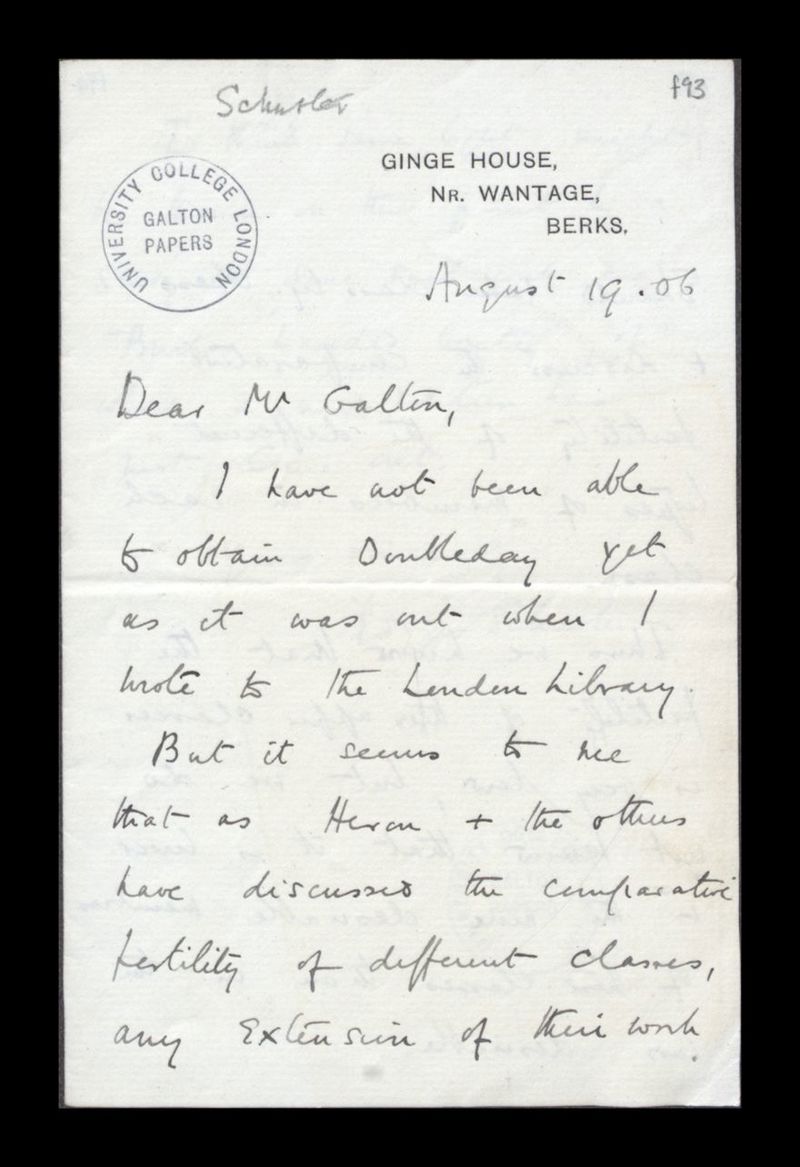 Schuster
f93
GINGE HOUSE,
NR. WANTAGE,
BERKS.
UNIVERSITY COLLEGE LONDON
GALTON
PAPERS
August 19.06
Dear Mr Galton,
I have not been able
to obtain Doubleday yet
as it was out when I
wrote to the London Library.
But it seems to me
that as Heron + the others
have discussed the comparative
fertility of different classes,
any extension of their work.